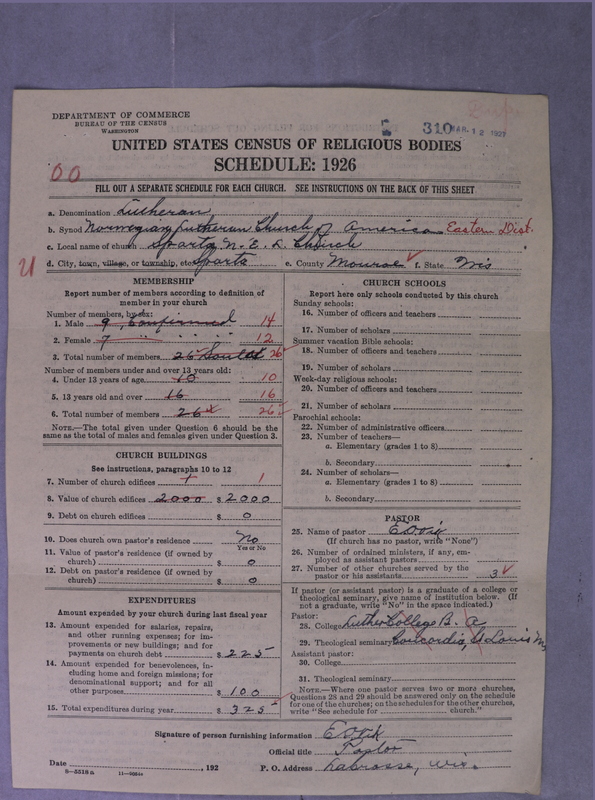 DEPARTMENT OF COMMERCE
BUREAU OF THE CENSUS
WASHINGTON
310 MAR. 12 1927
UNITED STATES CENSUS OF RELIGIOUS BODIES
SCHEDULE: 1926
00
FILL OUT A SEPARATE SCHEDULE FOR EACH CHURCH. SEE INSTRUCTIONS ON THE BACK OF THIS SHEET
a. Denomination Lutheran
b. Synod Norwegian Lutheran Church of America Eastern Dist.
c. Local name of church Sparta N. E. L. Church
d. City, town, village, or township, etc. Sparta e. County Monroe f. State Wis
MEMBERSHIP
Report number of members according to definition of
member in your church
Number of members, by sex:
1. Male 9 Confirmed 14
2. Female 7 12
3. Total number of members 26 Souls 26
Number of members under and over 13 years old:
4. Under 13 years of age 10 10
5. 13 years old and over 16 16
6. Total number of members 26 26
NOTE.—The total given under Question 6 should be
same as the total of males and females given under Question 3.
CHURCH BUILDINGS
See instructions, paragraphs 10 to 12
7. Number of church edifices 1 1
8. Value of church edifices 2000 $ 2000
9. Debt on church edifices $ 0
10. Does church own pastor's residence? No
Yes or No
11. Value of pastor's residence (if owned by
church) $ 0
12. Debt on pastor's residence (if owned by
church) $ 0
EXPENDITURES
Amount expended by your church during last fiscal year
13. Amount expended for salaries, repairs,
and other running expenses; for im-
provements or new buildings; and for
payments on church debt $ 225
14. Amount expended for benevolences, in-
cluding home and foreign missions; for
denominational support; and for all
other purposes $ 100
15. Total expenditures during year $ 325
CHURCH SCHOOLS
Report here only schools conducted by this church
Sunday schools:
16. Number of officers and teachers
17. Number of scholars
Summer vacation Bible schools:
18. Number of officers and teachers
19. Number of scholars
Week-day religious schools:
20. Number of officers and teachers
21. Number of scholars
Parochial schools:
22. Number of administrative officers
23. Number of teachers—
a. Elementary (grades 1 to 8)
b. Secondary
24. Number of scholars—
a. Elementary (grades 1 to 8)
b. Secondary
PASTOR
25. Name of pastor
(If church has no pastor, write "None")
26. Number of ordained ministers, if any, em-
ployed as assistant pastors
27. Number of other churches served by the
pastor or his assistants 3
If pastor (or assistant pastor) is a graduate of a college or
theological seminary, give name of institution below. (If
not a graduate, write "No" in the space indicated.)
Pastor:
28. College Luther College B. A
29. Theological seminary Concordia, St Louis Mo
Assistant pastor:
30. College
31. Theological seminary
NOTE.—Where one pastor serves two or more churches,
Questions 28 and 29 should be answered only on the schedule
for one of the churches; on the schedules for the other churches,
write "See schedule for church."
Signature of person furnishing information
Official title Pastor
Date , 192 P. O. Address LaCrosse, Wis.
8—5518a 11—9054a